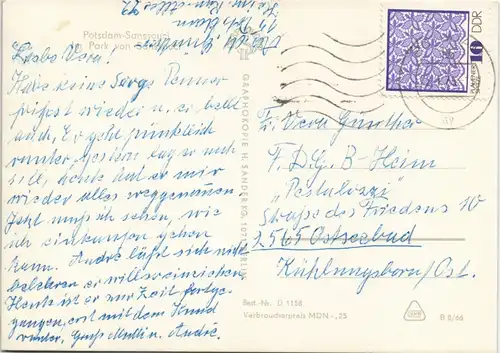 Potsdam-Sanssouci
Park von
Liebe Vera!
Habe keine Sorge
frißst wieder u. er bellt
auch, Er geht pünktlich
runter, gestern lag er noch
still, heute hat er mir
wieder alles weggenommen.
Jetzt muß ich sehen, wie
ich einkaufen gehen
kann. André läßt sich nicht
belehren er will
Heute ist er zur Zeit fortge-
gangen, erst mit dem Hund
runter, Gruß Mutti u. André.
GRAPHOKOPIE H. SANDER KG, 107 BERLIN
Best.-Nr. D 1158
Verbraucherpreis MDN -,25
B 8/66
PLAUENER SPITZE
10
DDR
Vera Günther
F.D.G.B-Heim
"Pestalozzi"
Straße des Friedens 10
2565 Ostseebad
Kühlungsborn/Ost.